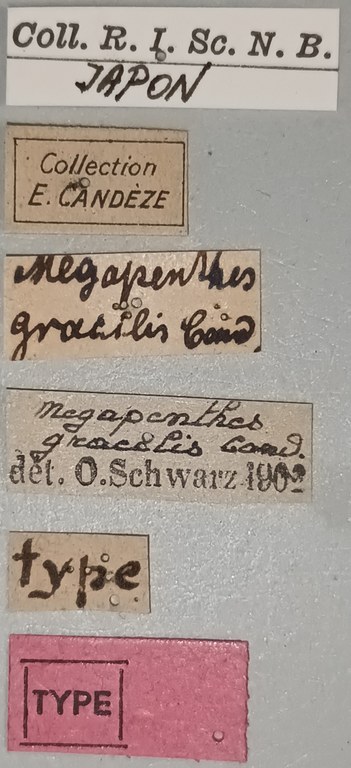 Coll. R. I. Sc. N. B.
JAPON
Collection
E. CANDÈZE
Megapenthes
gracilis Cand.
Megapenthes
gracilis Cand.
dét. O. Schwarz 1902
type
TYPE